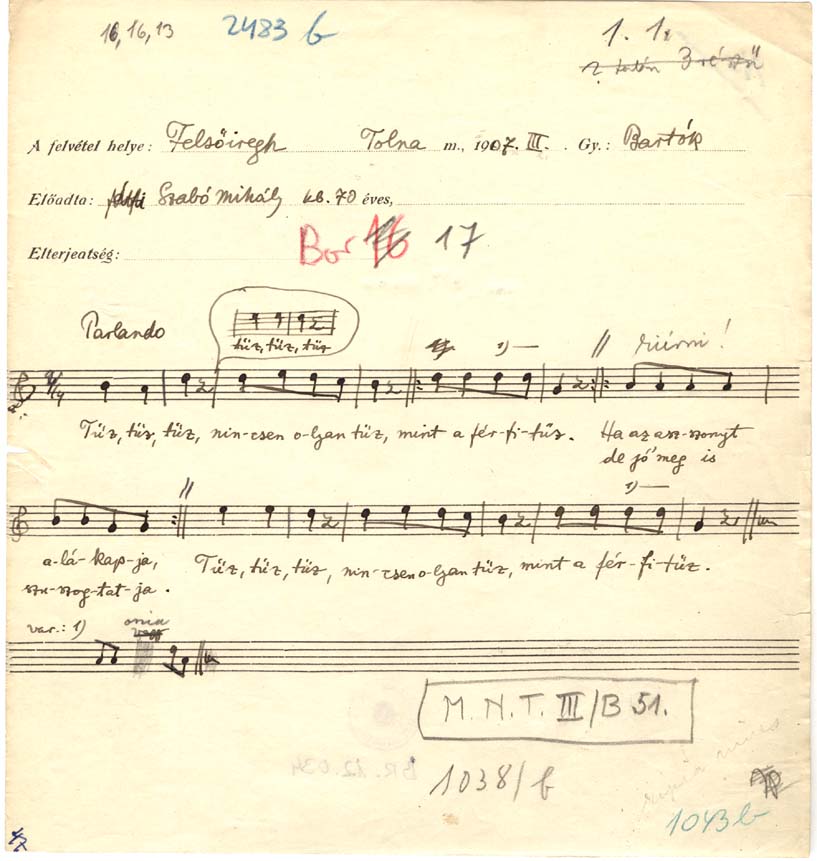 16, 16, 13 2483 b 1. 1.
A felvétel helye: Felsőiregh Tolna m., 1907. III. Gy.: Bartók
Előadta: Szabó Mihály kb. 70 éves,
Elterjedtség: Bor 17
Parlando
tüz, tüz, tüz
1)
Tüz, tüz, tüz, nin-csen o-lyan tüz, mint a fér-fi-tüz. Ha az asz-szonyt
de jó' meg is
1)
a-lá-kap-ja, Tüz, tüz, tüz, nin-csen o-lyan tüz, mint a fér-fi-tüz.
szu-szog-tat-ja.
var.: 1)
M.N.T. III/B 51.
BR. 12.034
1038/b
1043 b